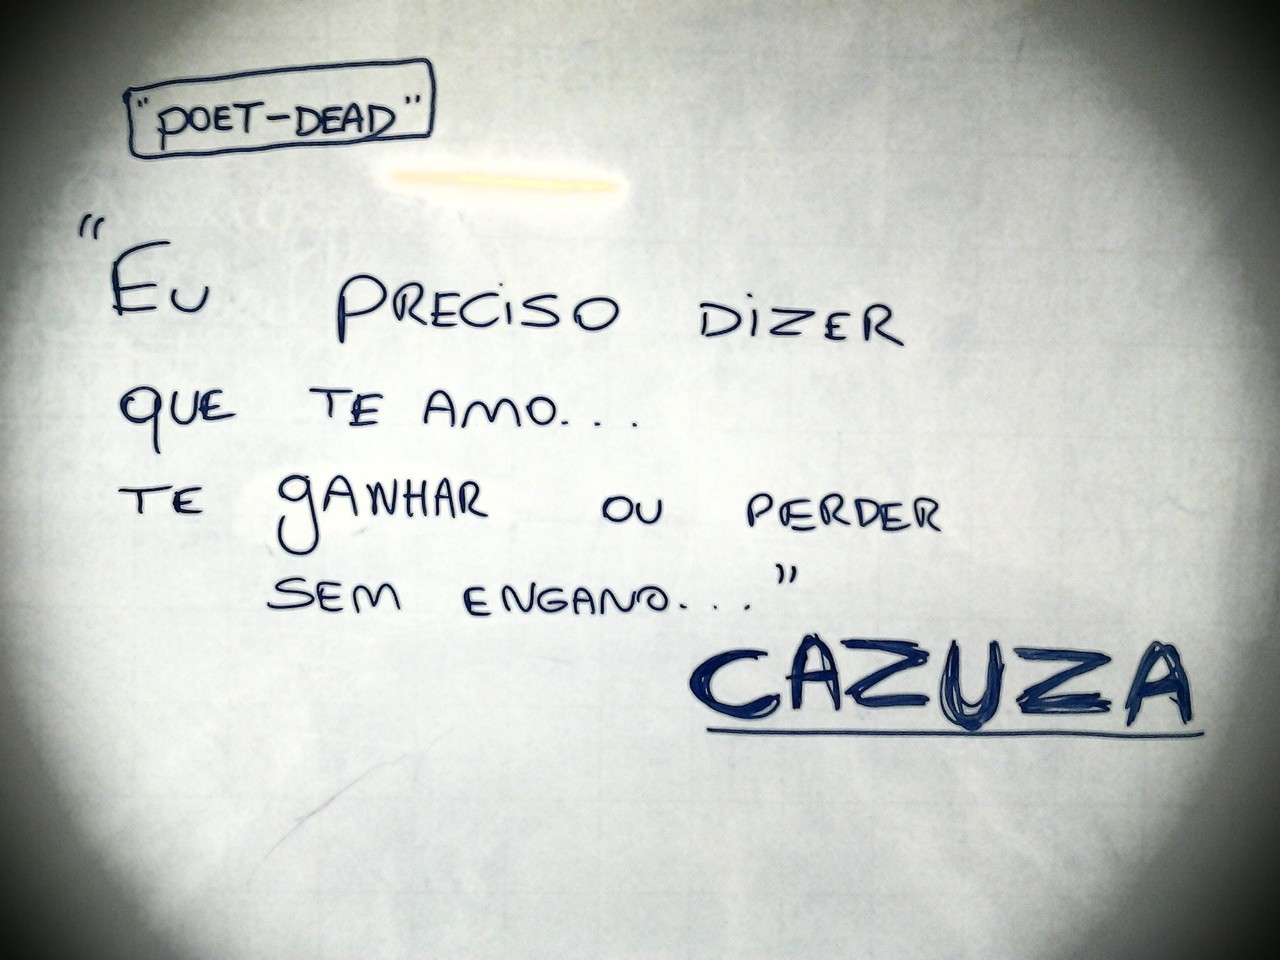 "POET-DEAD"
"EU PRECISO DIZER
QUE TE AMO...
TE GANHAR OU PERDER
SEM ENGANO..."
CAZUZA